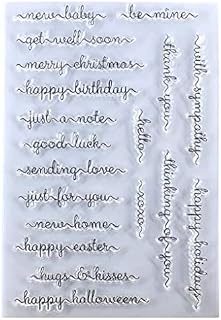 new baby
be mine
get well soon
merry christmas
happy birthday
just a note
good luck
sending love
just for you
new home
happy easter
hugs & kisses
happy halloween
hello
xoxo
thank you
thinking of you
with sympathy
happy holidays